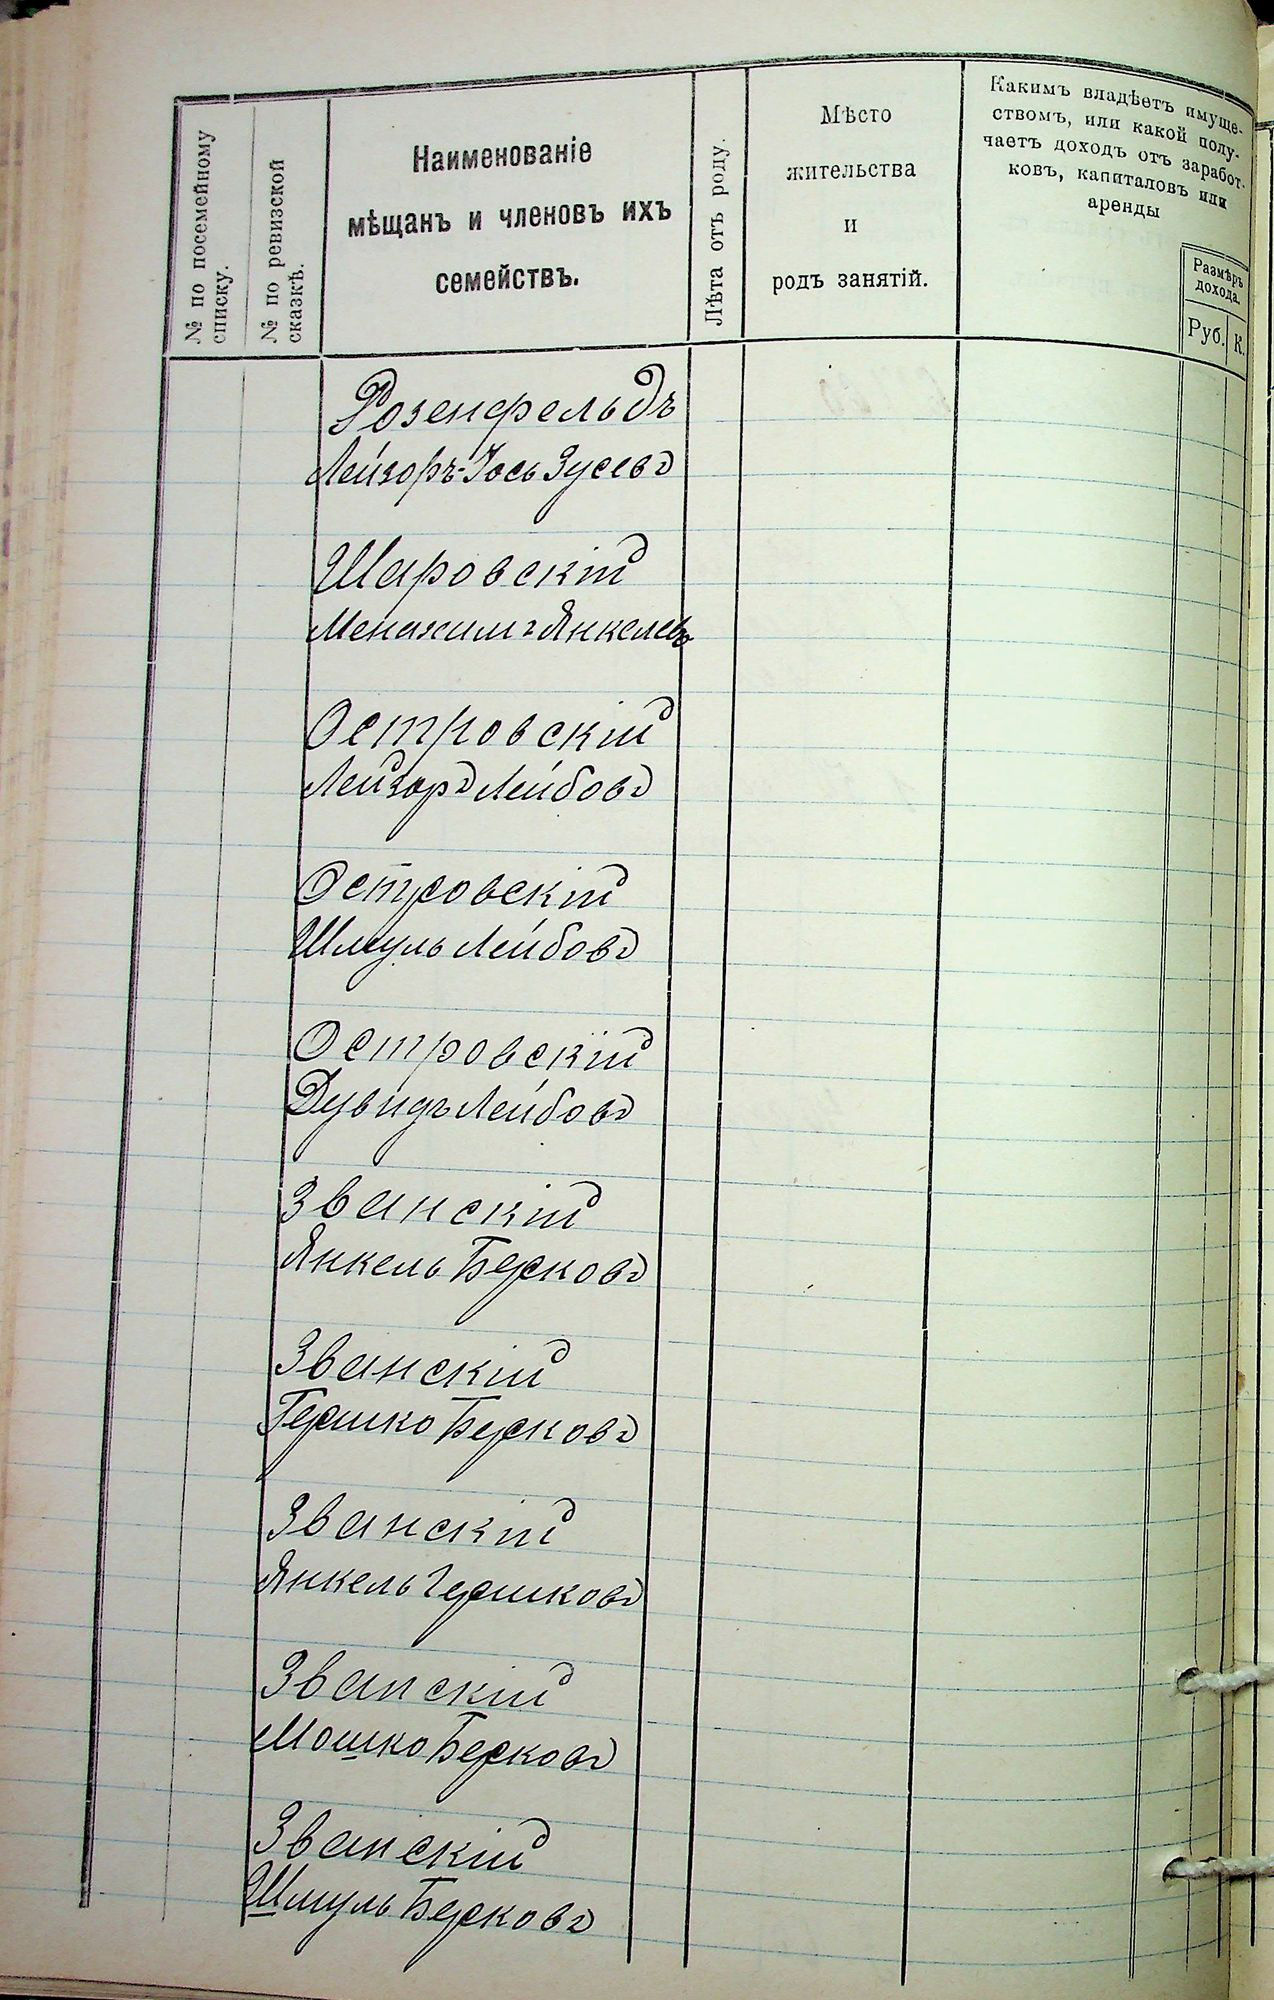 № по посемейному
списку.
№ по ревизской
сказкѣ.
Наименованіе
мѣщанъ и членовъ ихъ
семействъ.
Лѣта отъ роду.
Мѣсто
жительства
и
родъ занятій.
Какимъ владѣетъ имуще-
ствомъ, или какой полу-
чаетъ доходъ отъ заработ-
ковъ, капиталовъ или
аренды
Размѣръ
дохода.
Руб.
К.
Розенфельдъ
Лейзоръ-Іось Зусевъ
Шаровскій
Менахимъ Янкелевъ
Островскій
Лейзоръ Лейбовъ
Островскій
Шмуль Лейбовъ
Островскій
Дувидъ Лейбовъ
Званскій
Янкель Берковъ
Званскій
Гершко Берковъ
Званскій
Янкель Гершковъ
Званскій
Мошко Берковъ
Званскій
Шмуль Берковъ